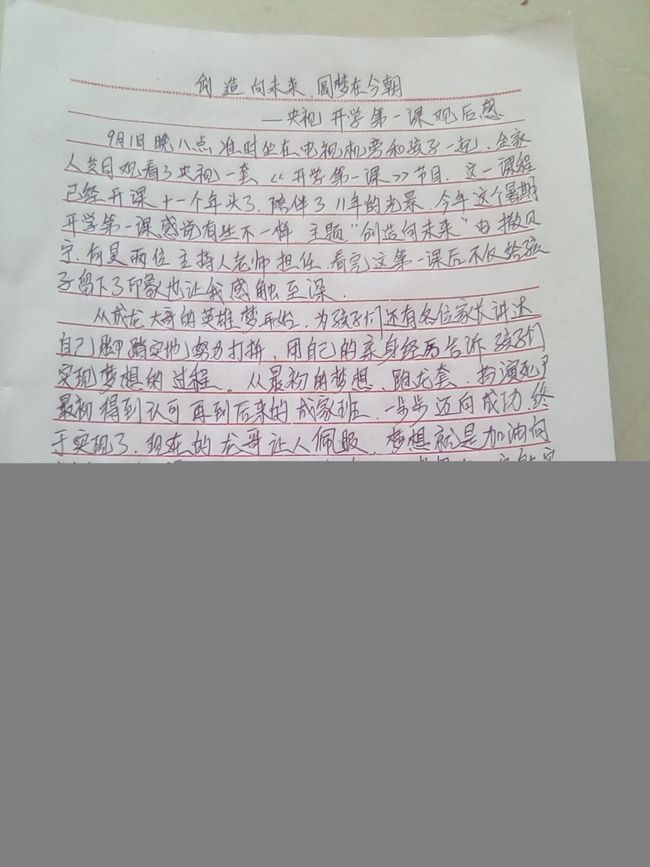 创造向未来、圆梦在今朝
——央视开学第一课观后感
9月1日晚八点准时坐在电视机旁和孩子一起、全家
人共同观看了央视一套《开学第一课》节目、这一课程
已经开课十一个年头了、陪伴了11年的光景、今年这个暑期
开学第一课感觉有些不一样、主题“创造向未来”由撒贝
宁、何炅两位主持人老师担任、看完这第一课后不仅给孩
子留下了印象也让我感触至深、
从成龙大哥的英雄梦开始、为孩子们还有各位家长讲述
自己脚踏实地努力打拼、用自己的亲身经历告诉孩子们
实现梦想的过程。从最初的梦想、跑龙套、扮演死尸
最初得到认可再到后来的成家班、一步步迈向成功、终
于实现了、现在的龙哥让人佩服、梦想就是加油向